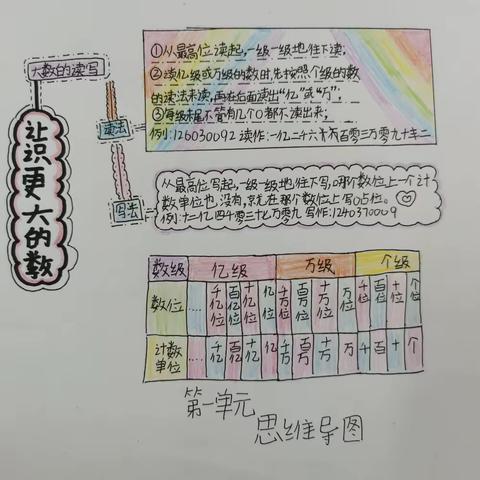 大数的读写
认识更大的数
读法
①从最高位读起,一级一级地往下读;
②读亿级或万级的数时,先按照个级的数
的读法来读,再在后面读出“亿”或“万”;
③每级末尾不管有几个0都不读出来;
例:126030092 读作:一亿二千六百零三万零九十二
写法
从最高位写起,一级一级地往下写,哪个数位上一个计
数单位也没有,就在那个数位上写0占位。
例:十二亿四千零三十七万零九 写作:1240370009
数级 亿级 万级 个级
数位 …… 千亿位 百亿位 十亿位 亿位 千万位 百万位 十万位 万位 千位 百位 十位 个位
计数单位 …… 千亿 百亿 十亿 亿 千万 百万 十万 万 千 百 十 个
第一单元
思维导图